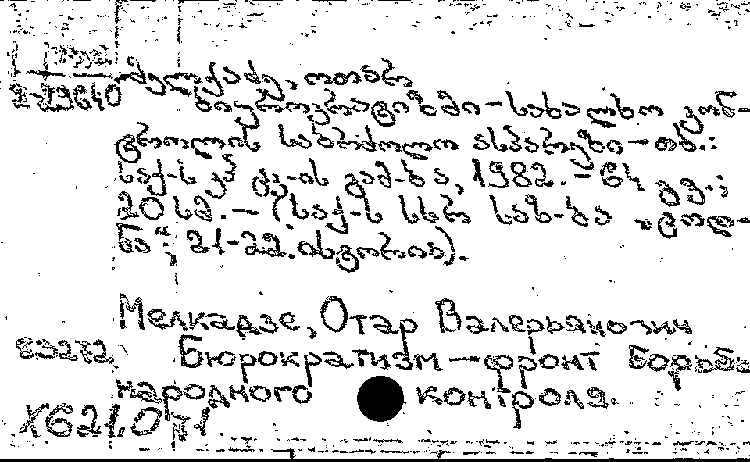 მელქაძე, ოთარ
2-29640
ბიუროკრატიზმი – სახალხო კონ-
ტროლის საბრძოლო ასპარეზი – თბ.:
საქ-ს კპ ცკ-ის გამ-ბა, 1982. – 64 გვ.;
20 სმ. – (საქ-ს სსრ საზ-ბა „ცოდ-
ნა“; 21-22. ისტორია).
Мелкадзе, Отар Валерьянович
83272
Бюрократизм – фронт борьбы
народного контроля.
X621.071